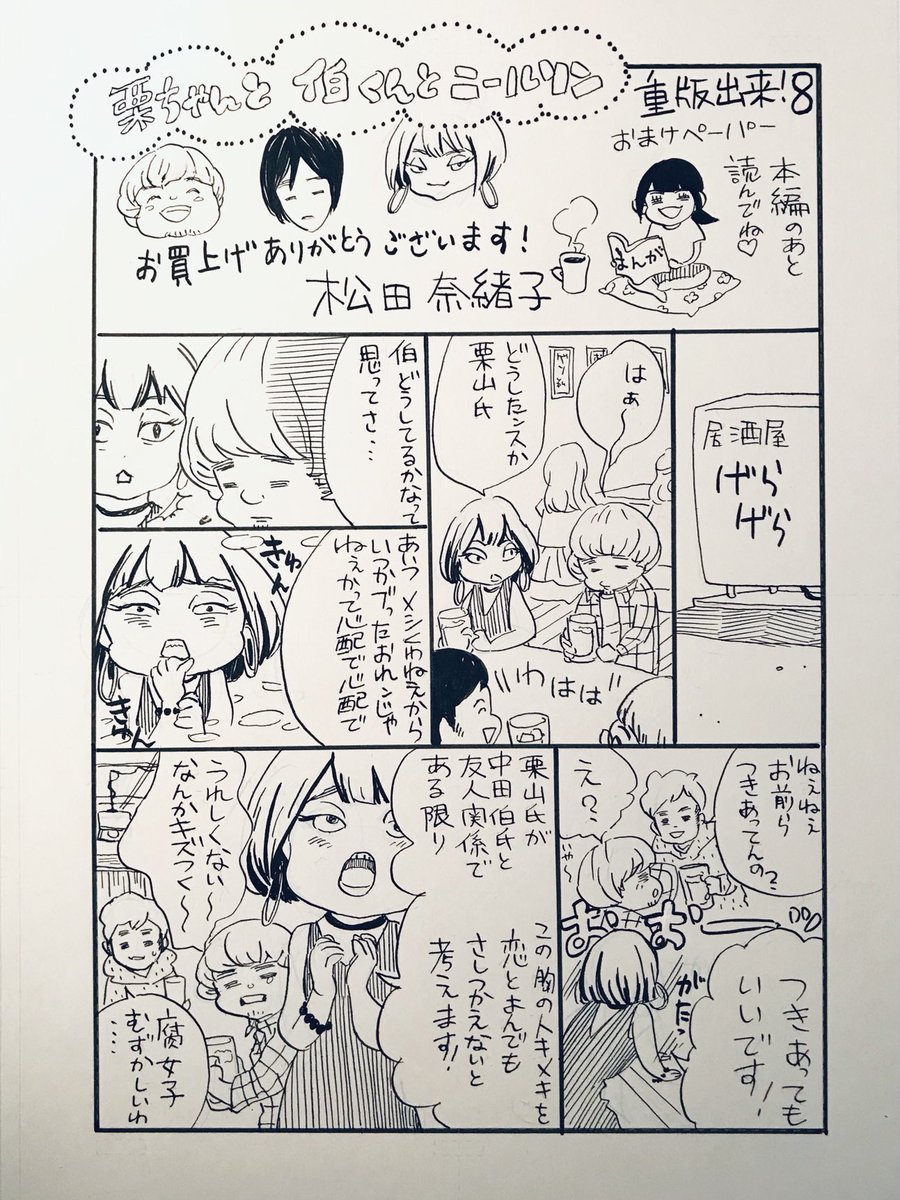 栗ちゃんと 伯くんとニールソン
重版出来!8
おまけペーパー
本編のあと
読んでね♡
まんが
お買上げありがとうございます!
松田奈緒子
居酒屋
げら
げら
はぁ
どうしたンスか
栗山氏
わはは
伯どうしてるかなって
思ってさ…
あいつメシくわねえから
いつかブッたおれンじゃ
ねぇかって心配で心配で
きゅん
きゅん
ねえねぇ
お前ら
つきあってんの?
え?
いや
おおー
がたっ
つきあっても
いいです!
栗山氏が
中田伯氏と
友人関係で
ある限り
この胸のトキメキを
恋とよんでも
さしつかえないと
考えます!
うれしくない〜
なんかキズつく〜
腐女子
むずかしいわ
……